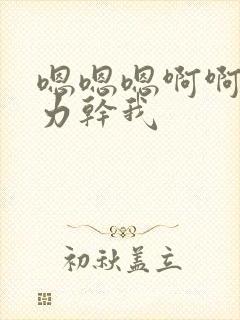 嗯嗯嗯啊啊
力幹我
初秋盖立